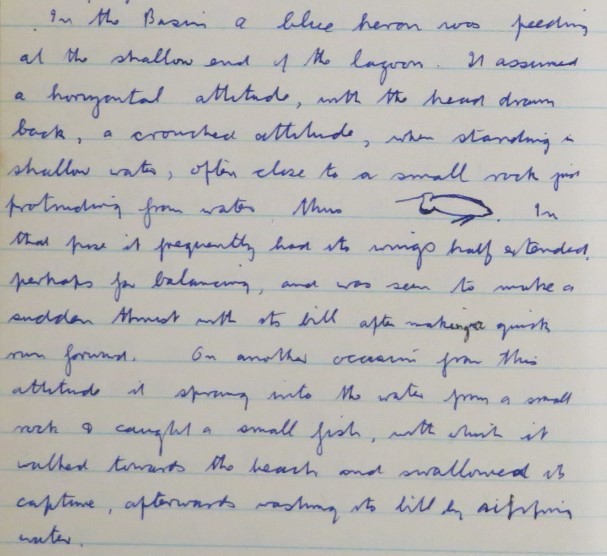 In the Basin a blue heron was feeding
at the shallow end of the lagoon. It assumed
a horizontal attitude, with the head drawn
back, a crouched attitude, when standing in
shallow water, often close to a small rock just
protruding from water thus . In
that pose it frequently had its wings half extended,
perhaps for balancing, and was seen to make a
sudden thrust with its bill after making a quick
run forward. On another occasion from this
attitude it sprang into the water from a small
rock & caught a small fish, with which it
walked towards the beach and swallowed its
capture, afterwards washing its bill by
water.